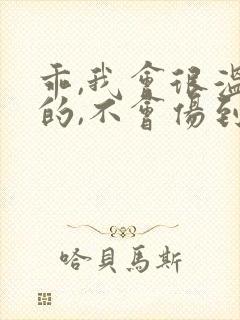 乖,我會很溫
的,不會傷到
哈貝馬斯